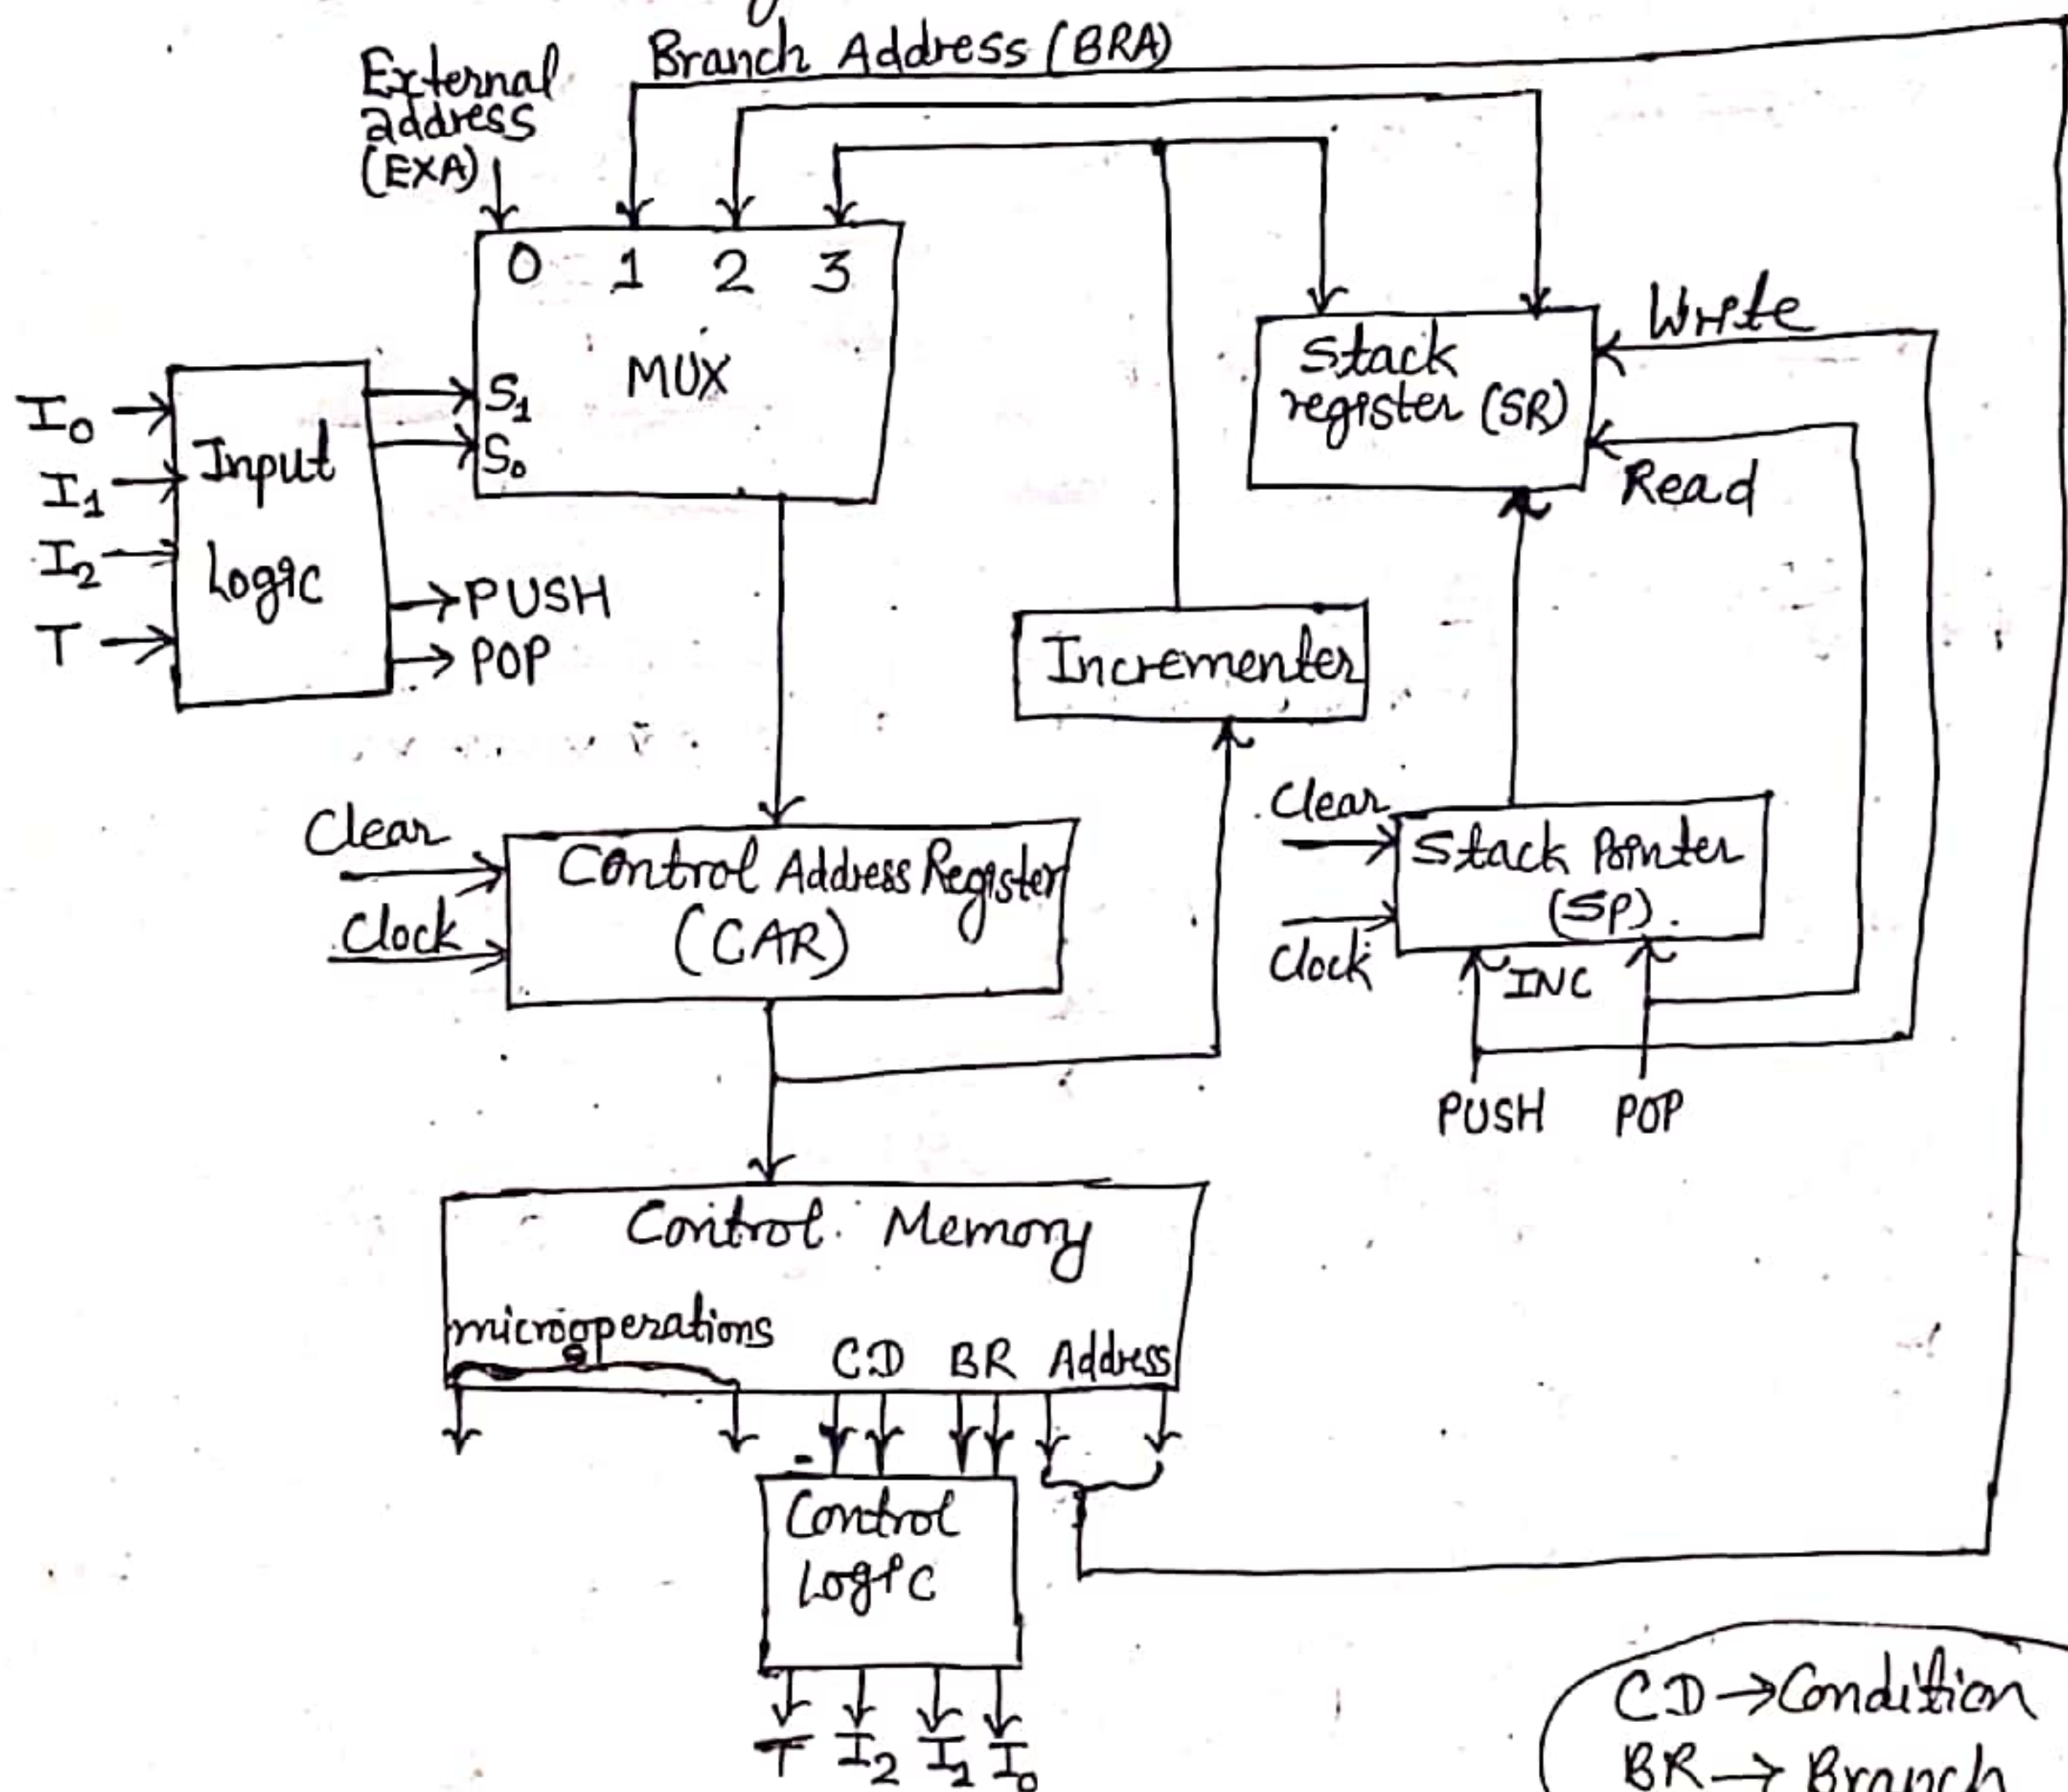 Branch Address (BRA)
External
address
(EXA)
0 1 2 3
MUX
S₁
S₀
I₀
I₁
I₂
T
Input
Logic
PUSH
POP
Stack
register (SR)
Write
Read
Incrementer
Clear
Clock
Control Address Register
(CAR)
Clear
Clock
Stack Pointer
(SP)
INC
PUSH POP
Control Memory
microoperations CD BR Address
Control
Logic
T I₂ I₁ I₀
CD → Condition
BR → Branch